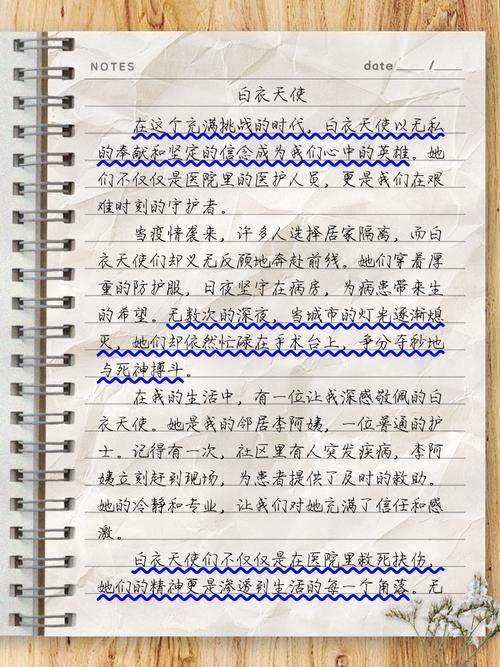 NOTES date ___ / ___
白衣天使
在这个充满挑战的时代，白衣天使以无私
的奉献和坚定的信念成为我们心中的英雄。她
们不仅仅是医院里的医护人员，更是我们在艰
难时刻的守护者。
当疫情袭来，许多人选择居家隔离，而白
衣天使们却义无反顾地奔赴前线。她们穿着厚
重的防护服，日夜坚守在病房，为病患带来生
的希望。无数次的深夜，当城市的灯光逐渐熄
灭，她们却依然忙碌在手术台上，争分夺秒地
与死神搏斗。
在我的生活中，有一位让我深感敬佩的白
衣天使。她是我的邻居李阿姨，一位普通的护
士。记得有一次，社区里有人突发疾病，李阿
姨立刻赶到现场，为患者提供了及时的救助。
她的冷静和专业，让我们对她充满了信任和感
激。
白衣天使们不仅仅是在医院里救死扶伤，
她们的精神更是渗透到生活的每一个角落。无